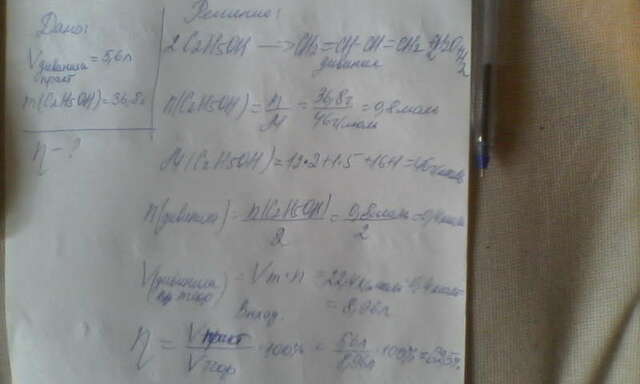 Дано:
V дивинила практ = 5,6л
m(C2H5OH)=36,8г
η - ?
Решение:
2 C2H5OH —> CH2=CH-CH=CH2
дивинил
n(C2H5OH) = m/M = 36,8г/46г/моль = 0,8моль
M(C2H5OH) = 12•2+1•5+16+1=46г/моль
n(дивинила) = n(C2H5OH)/2 = 0,8моль/2 = 0,4моль
V(дивинила) = Vm•n = 22,4л/моль•0,4моль
= 8,96л
Выход.
η = Vпракт/Vтеор •100% = 5,6л/8,96л •100% = 62,5%